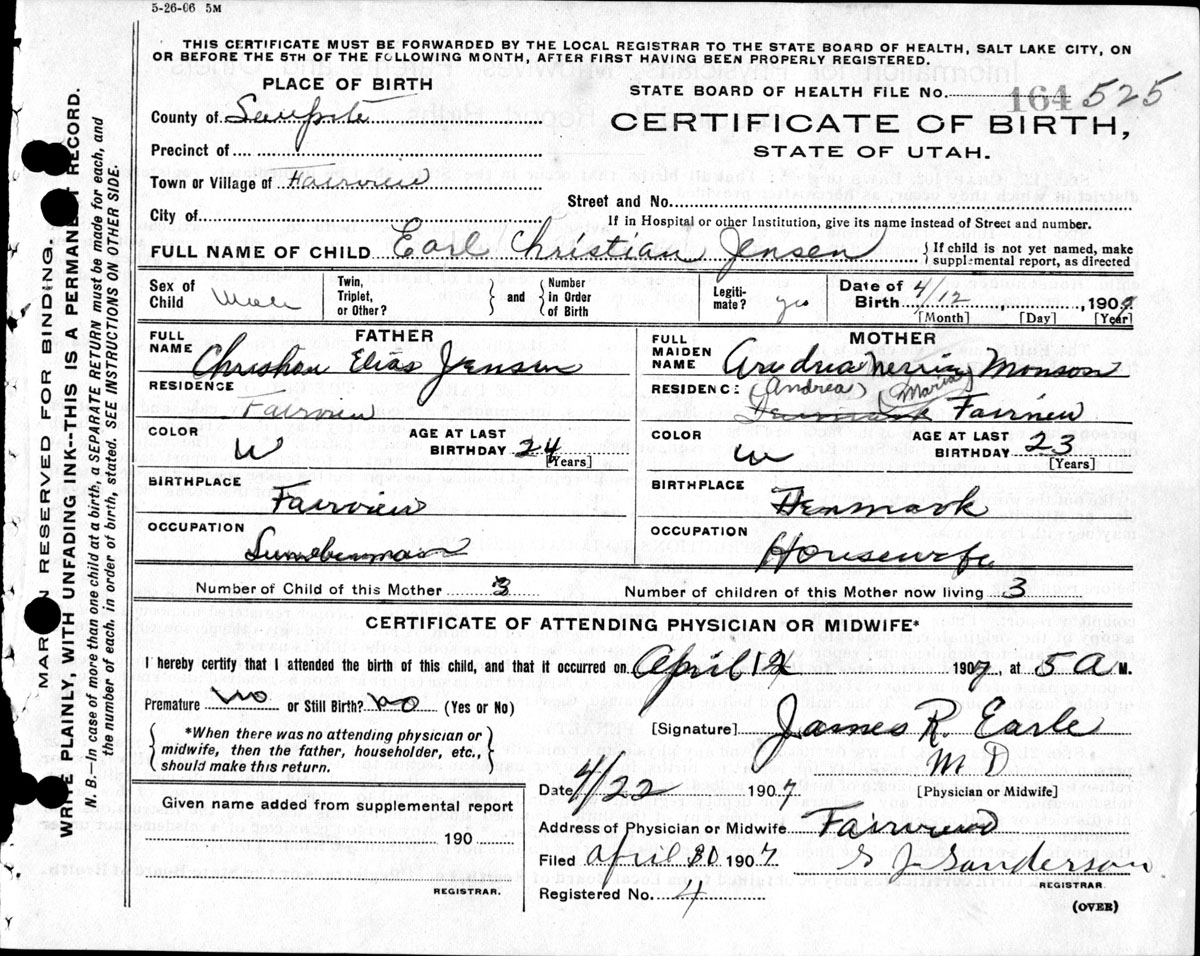 5-26-06 5M
THIS CERTIFICATE MUST BE FORWARDED BY THE LOCAL REGISTRAR TO THE STATE BOARD OF HEALTH, SALT LAKE CITY, ON
OR BEFORE THE 5TH OF THE FOLLOWING MONTH, AFTER FIRST HAVING BEEN PROPERLY REGISTERED.
PLACE OF BIRTH
STATE BOARD OF HEALTH FILE No. 164 525
County of Sanpete
CERTIFICATE OF BIRTH,
STATE OF UTAH.
Precinct of
Town or Village of Fairview
Street and No.
City of
If in Hospital or other Institution, give its name instead of Street and number.
FULL NAME OF CHILD Earl Christian Jensen
If child is not yet named, make
supplemental report, as directed
Sex of Child Male Twin, Triplet, or Other? and Number in Order of Birth Legiti-mate? yes Date of Birth 4/12, 190
[Month] [Day] [Year]
FATHER
FULL NAME Christian Elias Jensen
RESIDENCE Fairview
COLOR W AGE AT LAST BIRTHDAY 24
[Years]
BIRTHPLACE Fairview
OCCUPATION
MOTHER
FULL MAIDEN NAME Nerria Monson
(Andrea) (Maria)
RESIDENCE Denmark Fairview
COLOR W AGE AT LAST BIRTHDAY 23
[Years]
BIRTHPLACE Denmark
OCCUPATION Housewife
Number of Child of this Mother 3
Number of children of this Mother now living 3
CERTIFICATE OF ATTENDING PHYSICIAN OR MIDWIFE*
I hereby certify that I attended the birth of this child, and that it occurred on April 12 1907, at 5 A M.
Premature no or Still Birth? no (Yes or No)
*When there was no attending physician or
midwife, then the father, householder, etc.,
should make this return.
[Signature] James R. Earle
M D
[Physician or Midwife]
Date 4/22 1907
Given name added from supplemental report
190
REGISTRAR.
Address of Physician or Midwife Fairview
Filed April 30 1907 Sanderson
REGISTRAR.
Registered No. 4
(OVER)
MARGIN RESERVED FOR BINDING.
WRITE PLAINLY, WITH UNFADING INK--THIS IS A PERMANENT RECORD.
N. B.—In case of more than one child at a birth, a SEPARATE RETURN must be made for each, and
the number of each, in order of birth, stated. SEE INSTRUCTIONS ON OTHER SIDE.